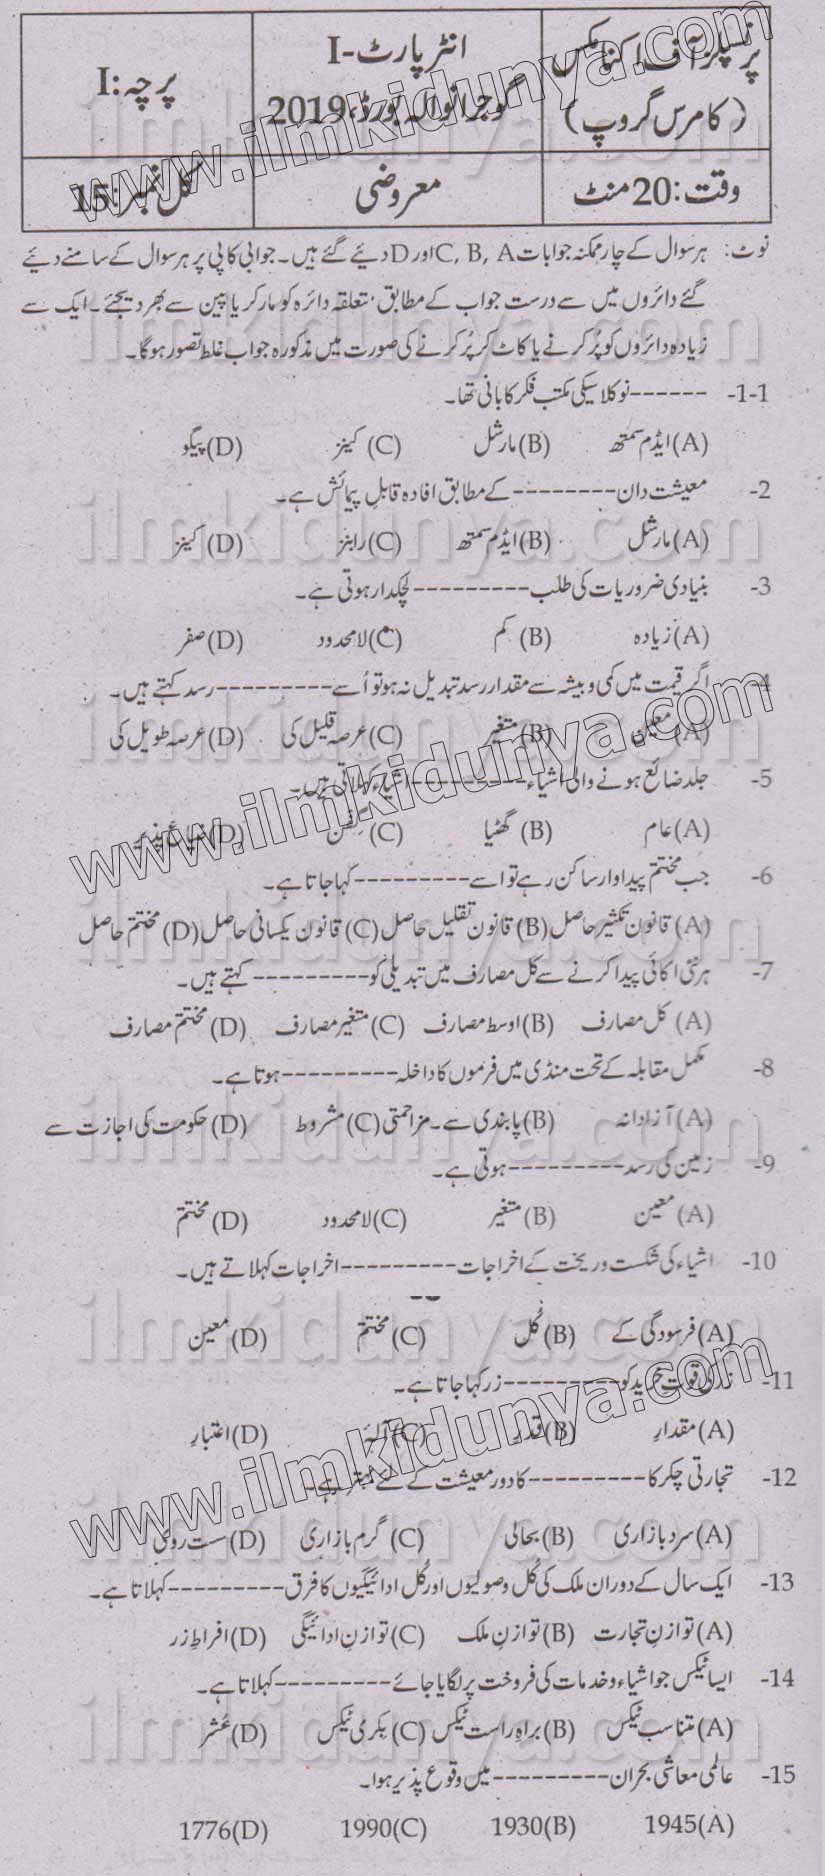 پرنسپلز آف اکنامکس
(کامرس گروپ)
انٹر پارٹ-I
گوجرانوالہ بورڈ، 2019
پرچہ: I
وقت: 20 منٹ
معروضی
کل نمبر: 15
نوٹ: ہر سوال کے چار ممکنہ جوابات C, B, A اور D دیئے گئے ہیں۔ جوابی کاپی پر ہر سوال کے سامنے دیئے
گئے دائروں میں سے درست جواب کے مطابق متعلقہ دائرہ کو مارکر یا پین سے بھر دیجئے۔ ایک سے
زیادہ دائروں کو پُر کرنے یا کاٹ کر پُر کرنے کی صورت میں مذکورہ جواب غلط تصور ہوگا۔
1-1- ------نوکلاسیکی مکتب فکر کا بانی تھا۔
(A) ایڈم سمتھ (B) مارشل (C) کینز (D) پیگو
2- معیشت دان---------کے مطابق افادہ قابلِ پیمائش ہے۔
(A) مارشل (B) ایڈم سمتھ (C) رابنز (D) کینز
3- بنیادی ضروریات کی طلب---------لچکدار ہوتی ہے۔
(A) زیادہ (B) کم (C) لامحدود (D) صفر
4- اگر قیمت میں کمی و بیشہ سے مقدار رسد تبدیل نہ ہو تو اُسے---------رسد کہتے ہیں۔
(A) معین (B) متغیر (C) عرصہ قلیل کی (D) عرصہ طویل کی
5- جلد ضائع ہونے والی اشیاء---------اشیاء کہلاتی ہیں۔
(A) عام (B) گھٹیا (C) گفن (D) ضیاع پذیر
6- جب مختتم پیداوار ساکن رہے تو اسے---------کہا جاتا ہے۔
(A) قانون تکثیر حاصل (B) قانون تقلیل حاصل (C) قانون یکسانی حاصل (D) مختتم حاصل
7- ہر نئی اکائی پیدا کرنے سے کل مصارف میں تبدیلی کو---------کہتے ہیں۔
(A) کل مصارف (B) اوسط مصارف (C) متغیر مصارف (D) مختتم مصارف
8- مکمل مقابلہ کے تحت منڈی میں فرموں کا داخلہ---------ہوتا ہے۔
(A) آزادانہ (B) پابندی سے۔مزاحمتی (C) مشروط (D) حکومت کی اجازت سے
9- زمین کی رسد---------ہوتی ہے۔
(A) معین (B) متغیر (C) لامحدود (D) مختتم
10- اشیاء کی شکست وریخت کے اخراجات---------اخراجات کہلاتے ہیں۔
(A) فرسودگی کے (B) کُل (C) مختتم (D) معین
11- زر کی قوت خرید کو---------زر کہا جاتا ہے۔
(A) مقدارِ (B) قدرِ (C) آلہ (D) اعتبارِ
12- تجارتی چکر کا---------کا دور معیشت کے لئے بہتر ہے۔
(A) سرد بازاری (B) بحالی (C) گرم بازاری (D) سست روی
13- ایک سال کے دوران ملک کی کُل وصولیوں اور کُل ادائیگیوں کا فرق---------کہلاتا ہے۔
(A) توازنِ تجارت (B) توازنِ ملک (C) توازنِ ادائیگی (D) افراطِ زر
14- ایسا ٹیکس جو اشیاء و خدمات کی فروخت پر لگایا جائے---------کہلاتا ہے۔
(A) متناسب ٹیکس (B) براہِ راست ٹیکس (C) بِکری ٹیکس (D) عُشر
15- عالمی معاشی بحران---------میں وقوع پذیر ہوا۔
1945(A) 1930(B) 1990(C) 1776(D)
www.ilmkidunya.com
www.ilmkidunya.com
www.ilmkidunya.com
ilmkidunya.com
ilmkidunya.com
ilmkidunya.com
ilmkidunya.com
ilmkidunya.com
ilmkidunya.com
ilmkidunya.com
ilmkidunya.com
ilmkidunya.com